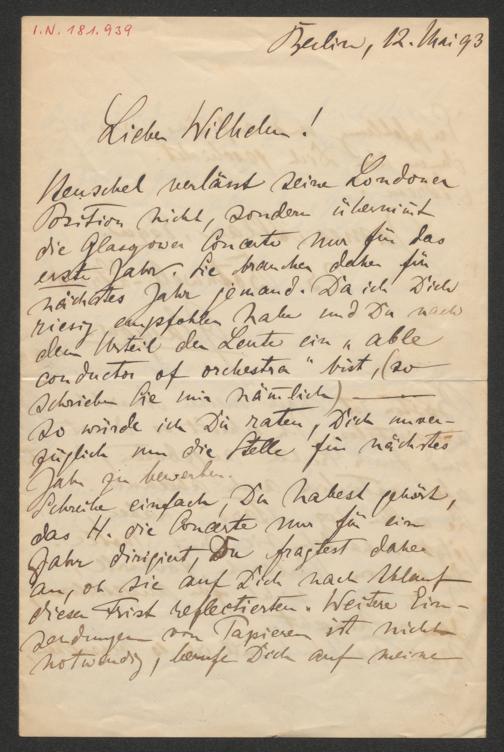 I.N. 181.939
Berlin, 12. Mai 93
Lieber Wilhelm!
Henschel verlässt seine Londoner
Position nicht, sondern übernimt
die Glasgower Concerte nur für das
erste Jahr. Sie brauchen daher für
nächstes Jahr jemand. Da ich Dich
riesig empfohlen habe und Du nach
dem Urteil der Leute ein "able
conductor of orchestra" bist, (so
schrieben Sie mir nämlich) —
so würde ich Dir raten, Dich unver-
züglich um die Stelle für nächstes
Jahr zu bewerben.
Schreibe einfach, Du habest gehört,
das H. die Concerte nur für ein
Jahr dirigiert, Du fragtest daher
an, ob sie auf Dich nach Ablauf
dieser Frist reflectierten. Weitere Ein-
sendungen von Papieren ist nicht
notwendig, berufe Dich auf meine